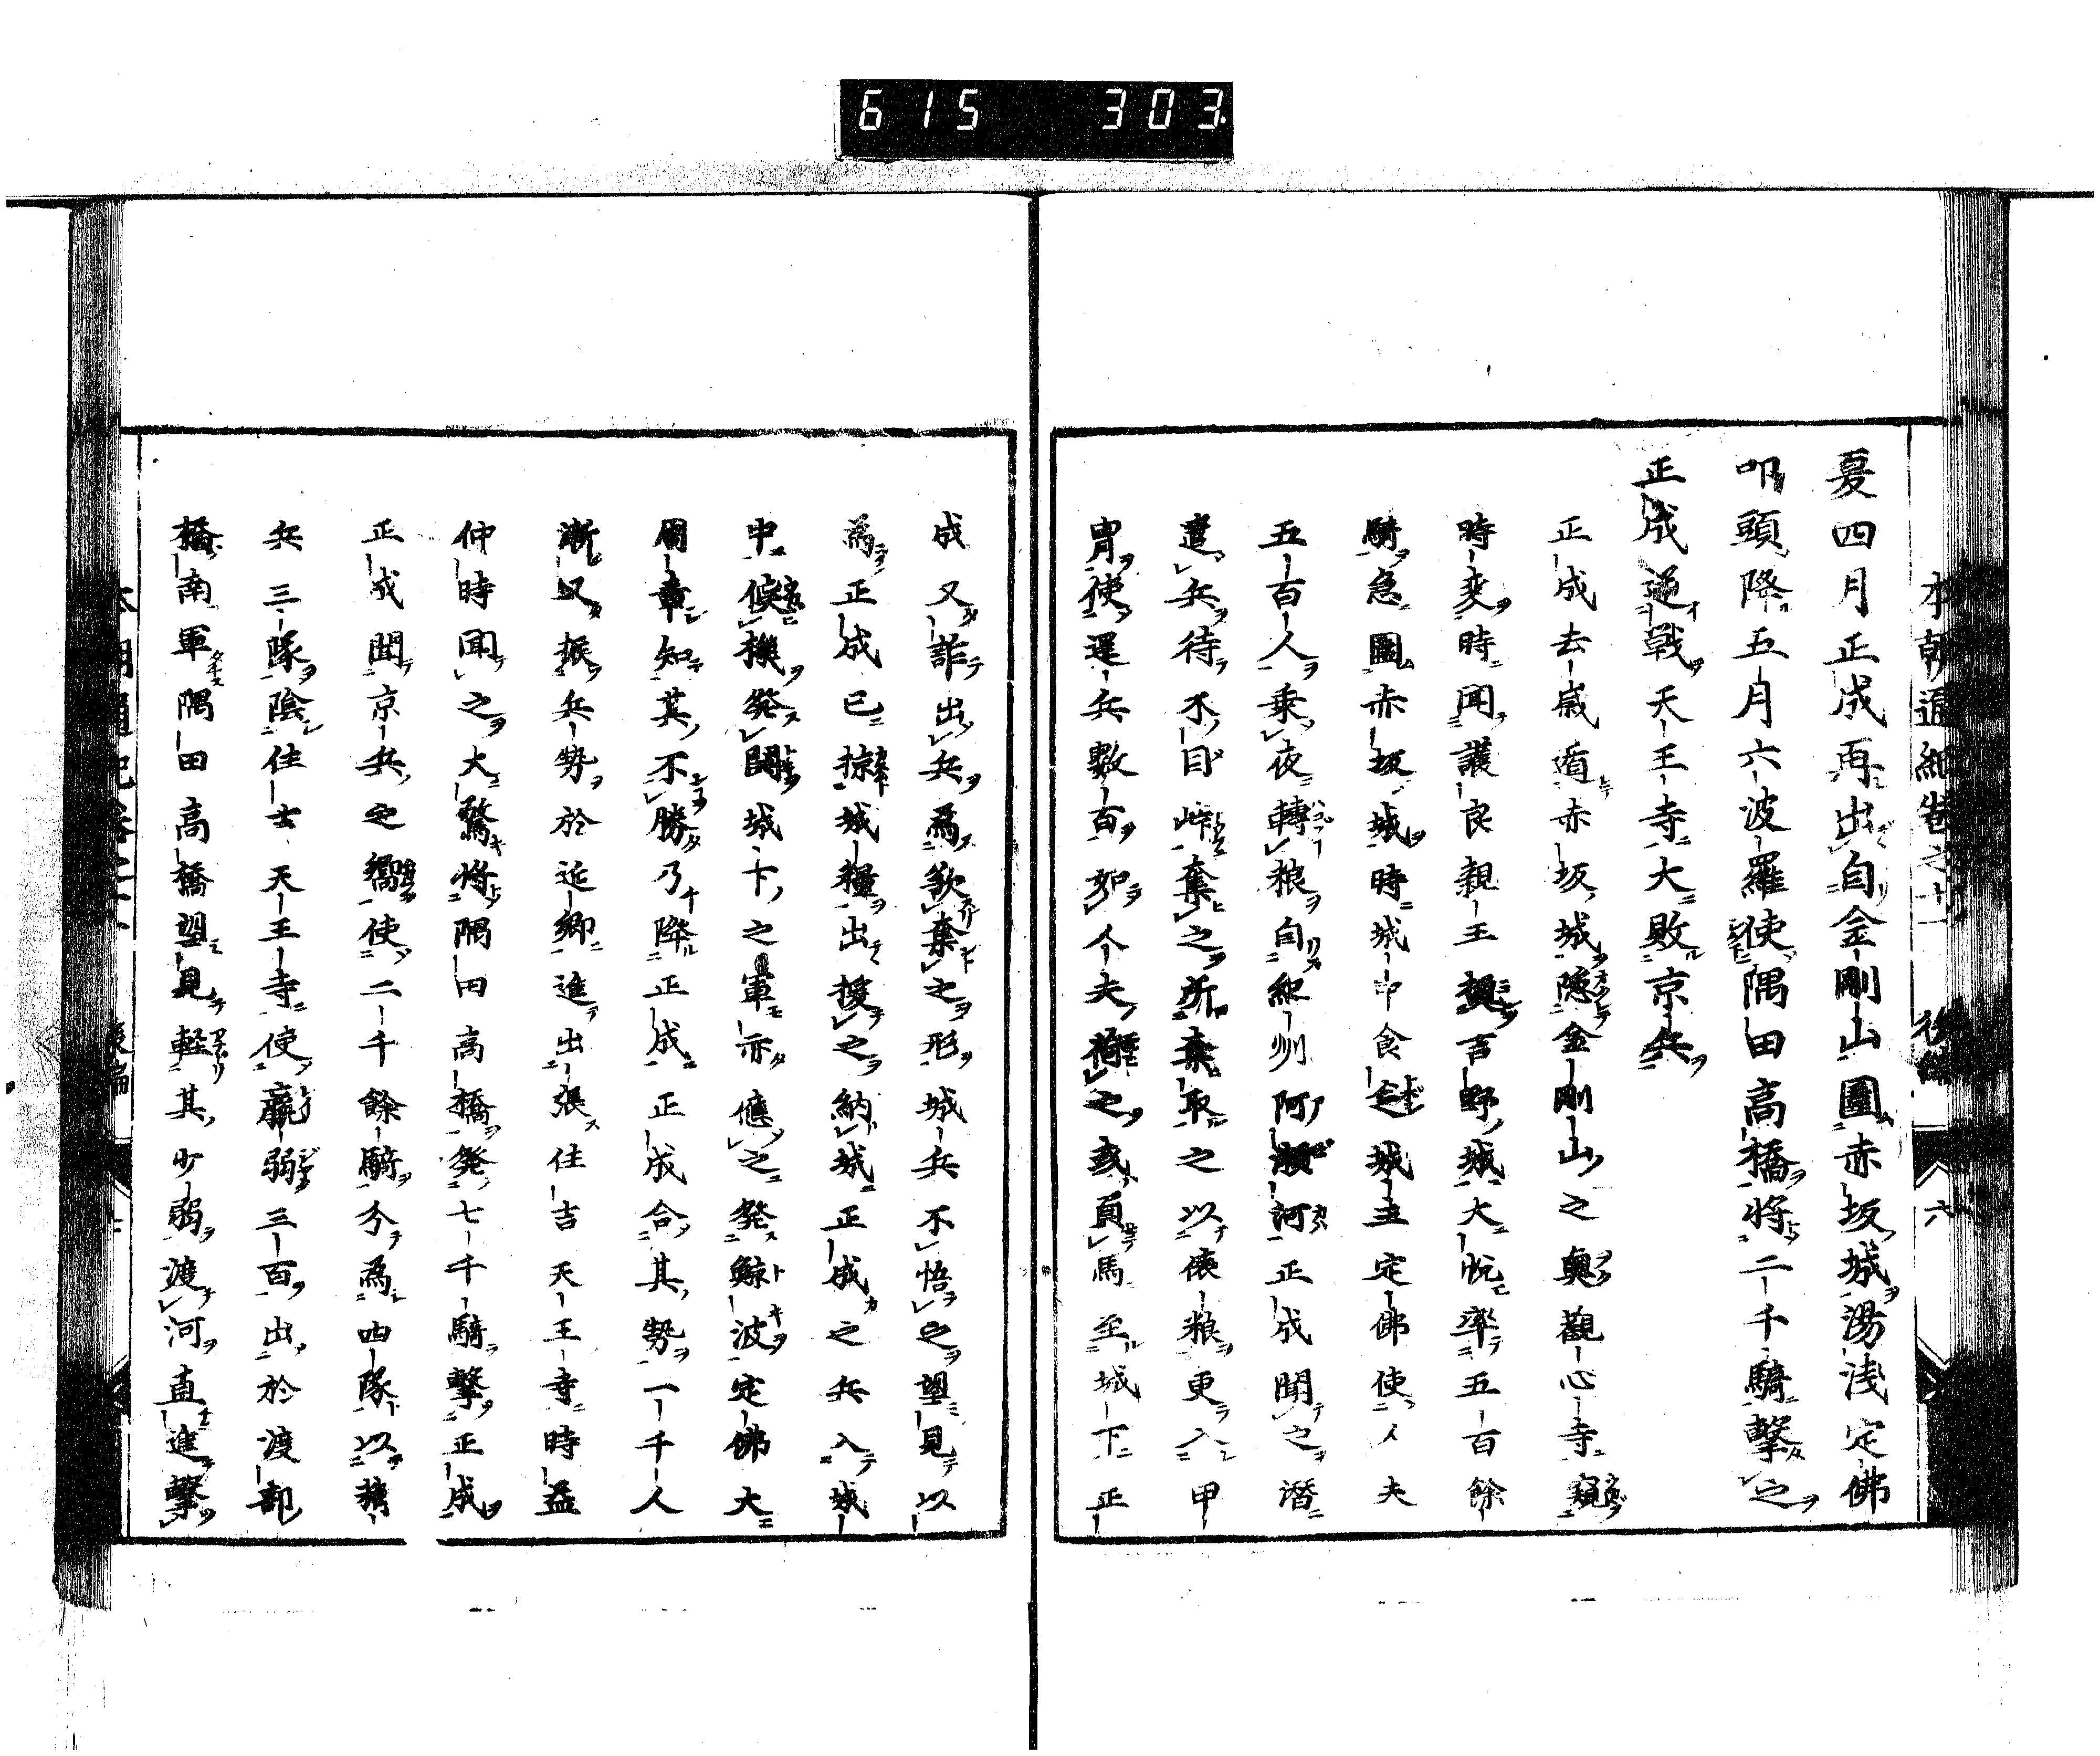 615 303
本朝通紀巻之十一 後編 六
夏四月正成再出自金剛山圍赤坂城湯浅定佛
叩頭降五月六波羅使隅田高橋将二千騎撃之
正成逆戦天王寺大敗京兵
正成去歳遁赤坂城隠金剛山之奥觀心寺窺
時変時聞護良親王據吉野城大悦率五百餘
騎急圍赤坂城時城中食乏城主定佛使人夫
五百人乗夜轉粮自紀州阿瀬河正成聞之潜
遣兵待不目峠奪之所奪取之以俵粮更入甲
冑使選兵數百如人夫擔之或負馬至城下正
成又詐出兵為欲奪之形城兵不悟之望見以
為正成已掠城糧出援之納城正成之兵入城
中候機発鬨城下之軍亦應之発鯨波定佛大
周章知其不勝乃降正成正成合其勢一千人
漸又振兵勢於近郷進出張住吉天王寺時益
仲時聞之大驚将隅田高橋発七千騎撃正成
正成聞京兵之嚮使二千餘騎分為四隊以精
兵三隊陰住吉天王寺使羸弱三百出於渡部
橋南軍隅田高橋望見輕其少弱渡河直進撃